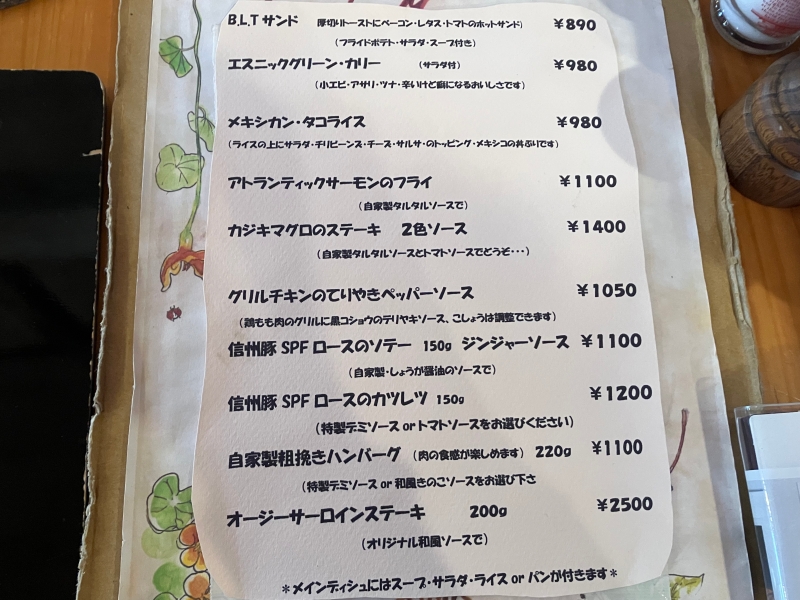 B.L.T サンド 厚切りトーストにベーコン・レタス・トマトのホットサンド) ¥890
(フライドポテト・サラダ・スープ付き)
エスニックグリーン・カリー (サラダ付) ¥980
(小エビ・アサリ・ツナ・辛いけど癖になるおいしさです)
メキシカン・タコライス ¥980
(ライスの上にサラダ・チリビーンズ・チーズ・サルサ・のトッピング・メキシコの丼ぶりです)
アトランティックサーモンのフライ ¥1100
(自家製タルタルソースで)
カジキマグロのステーキ 2色ソース ¥1400
(自家製タルタルソースとトマトソースでどうぞ・・・)
グリルチキンのてりやきペッパーソース ¥1050
(鶏もも肉のグリルに黒コショウのテリヤキソース、こしょうは調整できます)
信州豚 SPF ロースのソテー 150g ジンジャーソース ¥1100
(自家製・しょうが醤油のソースで)
信州豚 SPF ロースのカツレツ 150g ¥1200
(特製デミソース or トマトソースをお選びください)
自家製粗挽きハンバーグ (肉の食感が楽しめます) 220g ¥1100
(特製デミソース or 和風きのこソースをお選び下さ
オージーサーロインステーキ 200g ¥2500
(オリジナル和風ソースで)
*メインディシュにはスープ・サラダ・ライス or パンが付きます*